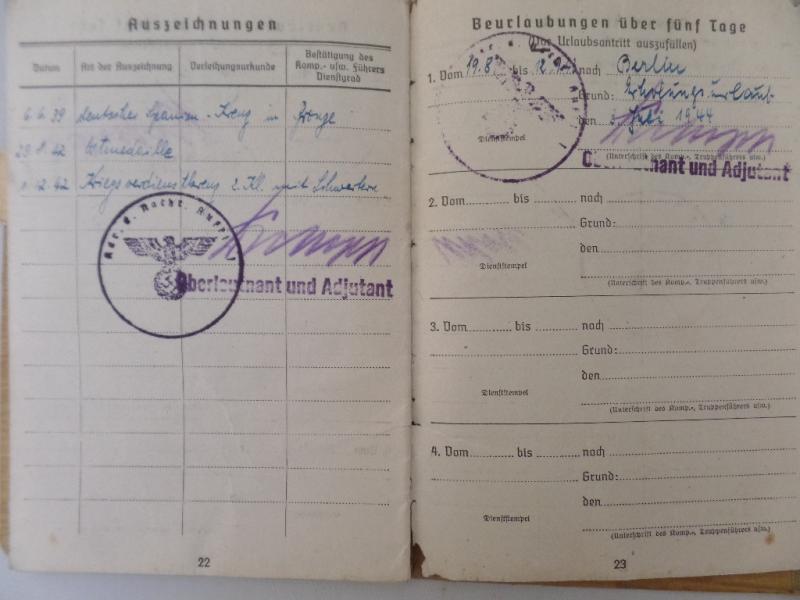 Auszeichnungen
Datum
Art der Auszeichnung
Verleihungsurkunde
Bestätigung des
Komp.- usw. Führers
Dienstgrad
6.6.39 Deutsches Spanien-Kreuz in Bronze
42 Ostmedaille
12.42 Kriegsverdienstkreuz 2. Kl. mit Schwertern
Oberleutnant und Adjutant
22
Beurlaubungen über fünf Tage
(Vor Urlaubsantritt auszufüllen)
1. Vom 19.8 bis nach Berlin
Grund: Erholungsurlaub
den Juli 1944
Dienststempel
(Unterschrift des Komp.-, Truppenführers usw.)
Oberleutnant und Adjutant
2. Vom bis nach
Grund:
den
Dienststempel
(Unterschrift des Komp.-, Truppenführers usw.)
3. Vom bis nach
Grund:
den
Dienststempel
(Unterschrift des Komp.-, Truppenführers usw.)
4. Vom bis nach
Grund:
den
Dienststempel
(Unterschrift des Komp.-, Truppenführers usw.)
23